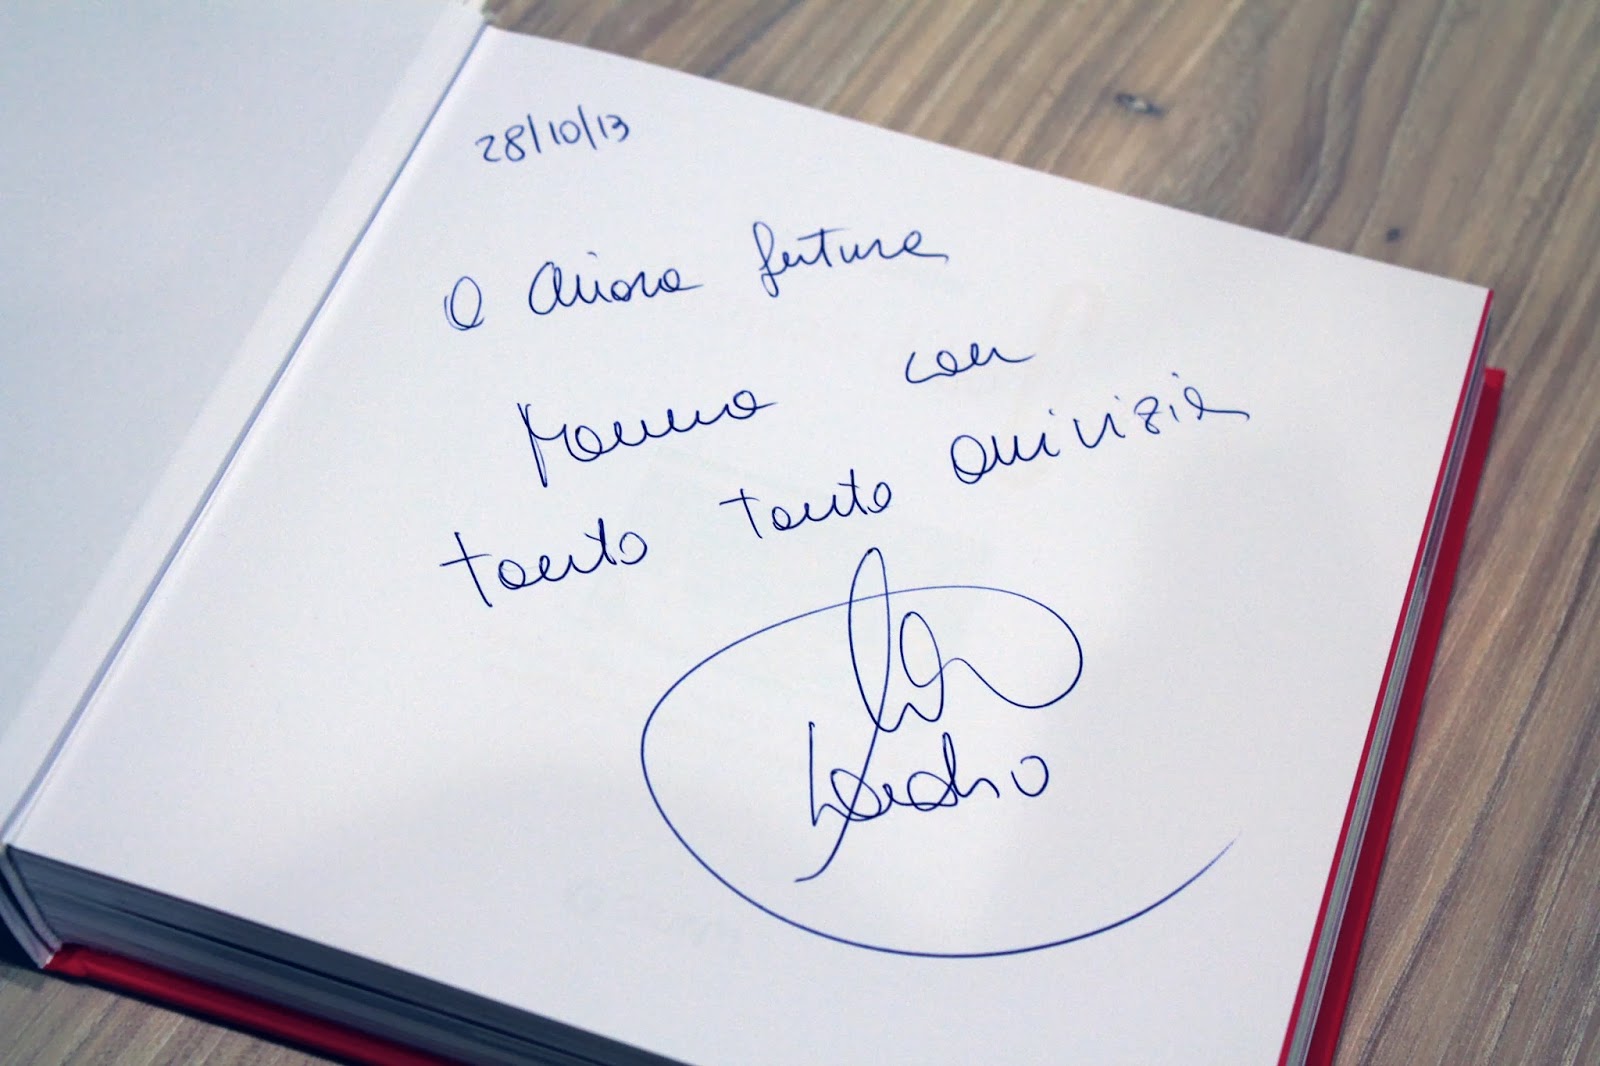 28/10/13
A Chiara futura
Mamma con
tanto tanto amicizia